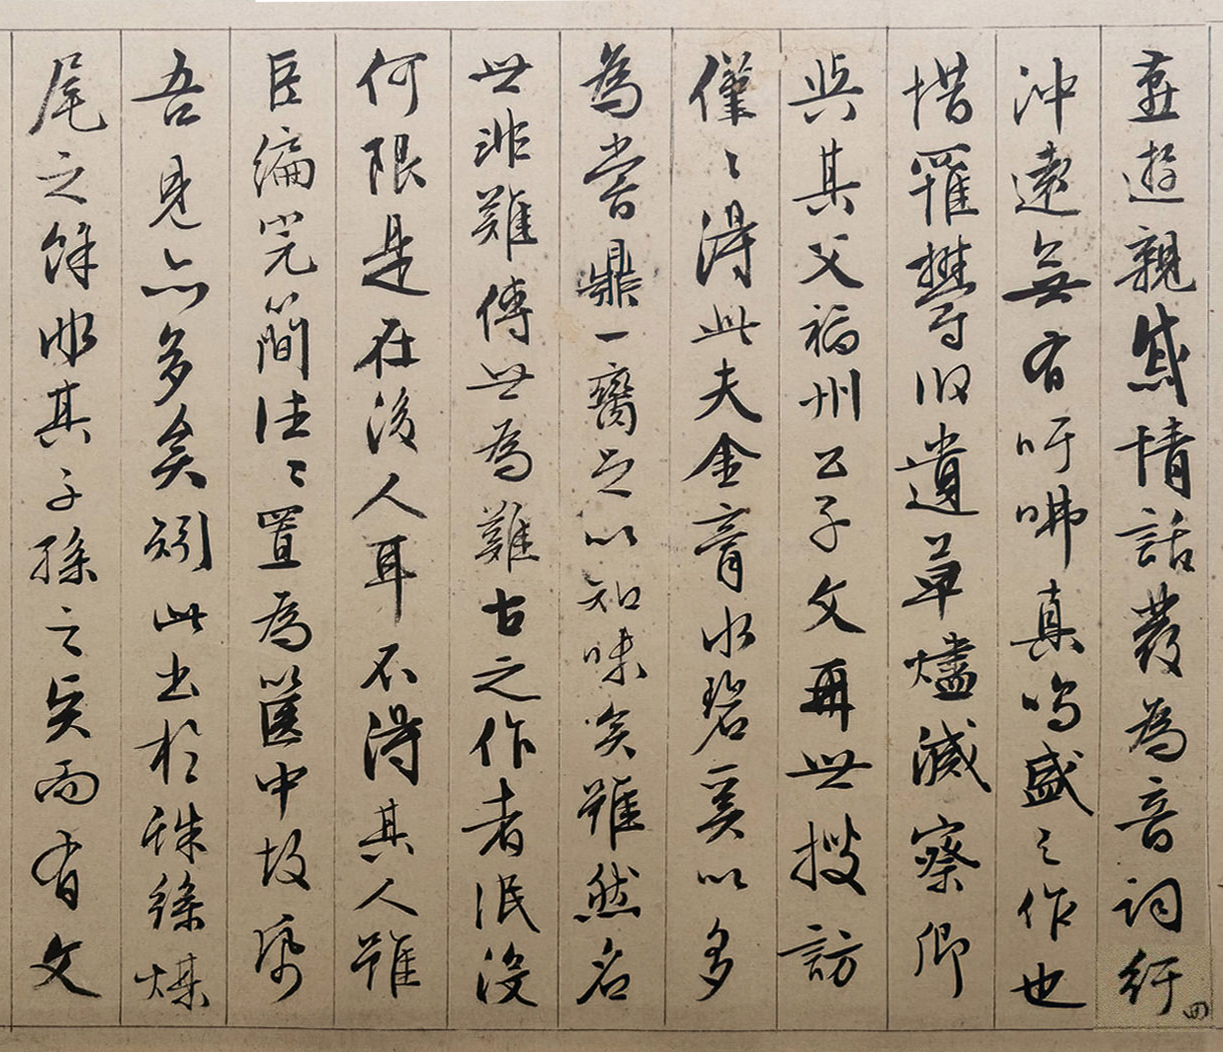 燕遊親戚情話發為音詞紆
四
沖遠無有吁咈真鳴盛之作也
惜罹欝攸遺草燼滅察卿
與其父福州公子文再世搜訪
僅〻得此夫金膏水碧奚以多
為嘗鼎一臠足以知味矣雖然名
世非難傳世為難古之作者泯沒
何限是在後人耳不得其人雖
巨編完簡往〻置為篋中故帋
吾見亦多矣矧此出於蛛絲煤
尾之餘邪其子孫之賢而有文